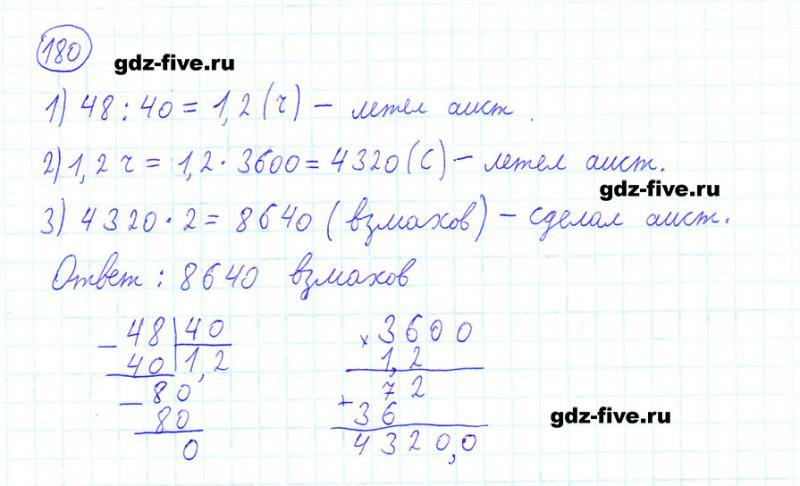 180
gdz-five.ru
1) 48 : 40 = 1,2 (ч) – летел аист.
2) 1,2 ч = 1,2 · 3600 = 4320 (с) – летел аист.
gdz-five.ru
3) 4320 · 2 = 8640 (взмахов) – сделал аист.
Ответ: 8640 взмахов
– 48 | 40
40 | 1,2
– 80
80
0
× 3600
1,2
+ 72
36
4320,0
gdz-five.ru